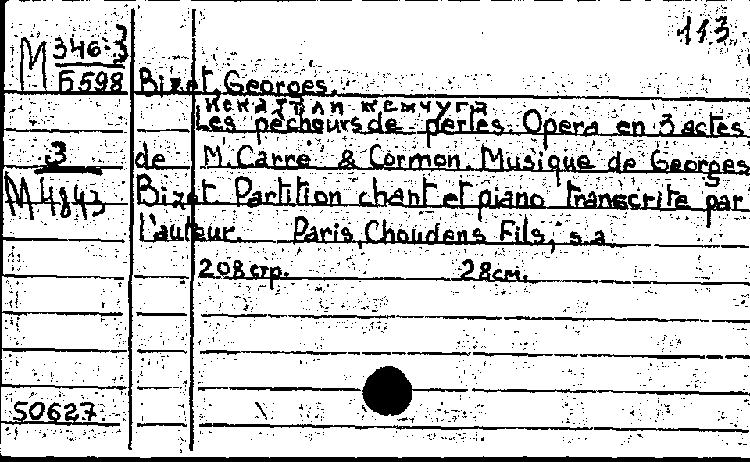 113
M 346-3
5598 Bizet, Georges.
Les pecheurs de perles. Opera en 3 actes
3 de M. Carre & Cormon. Musique de Georges
M 4843 Bizet Partition chant et piano transcrite par
l'auteur. Paris, Choudens Fils, s.a.
208 стр. 28 см.
50627.